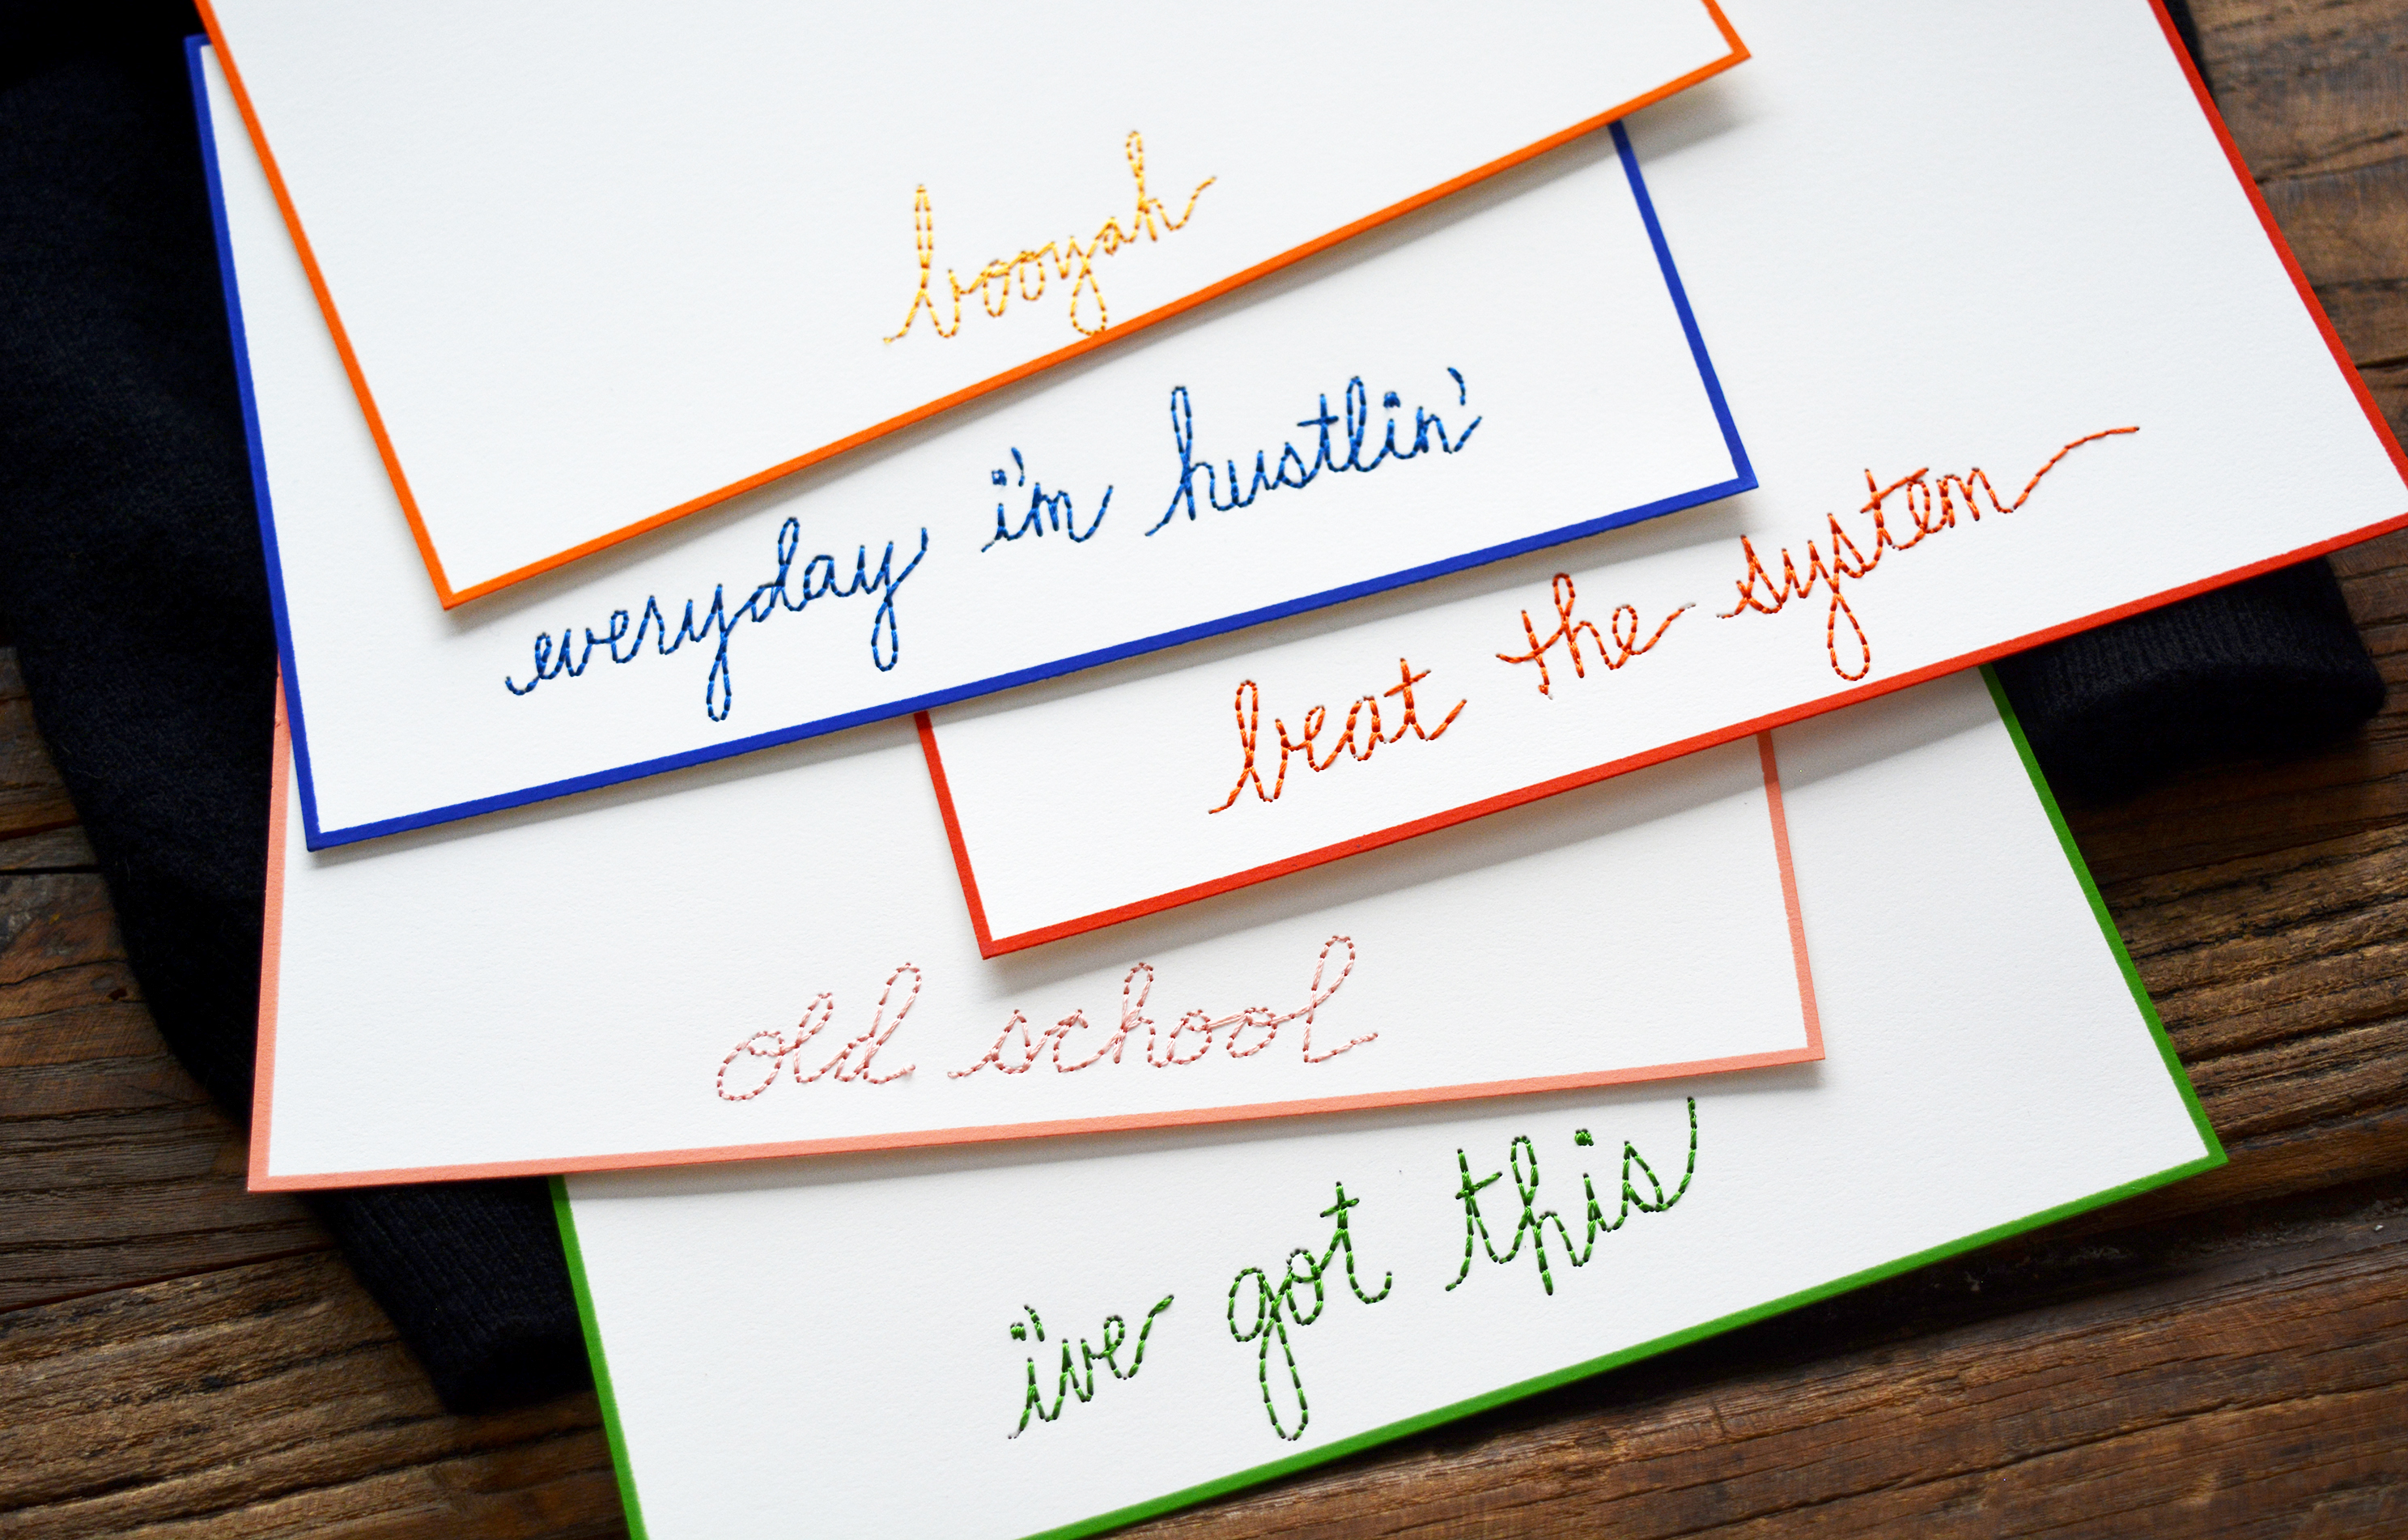 booyah
everyday i'm hustlin'
beat the system
old school
i've got this